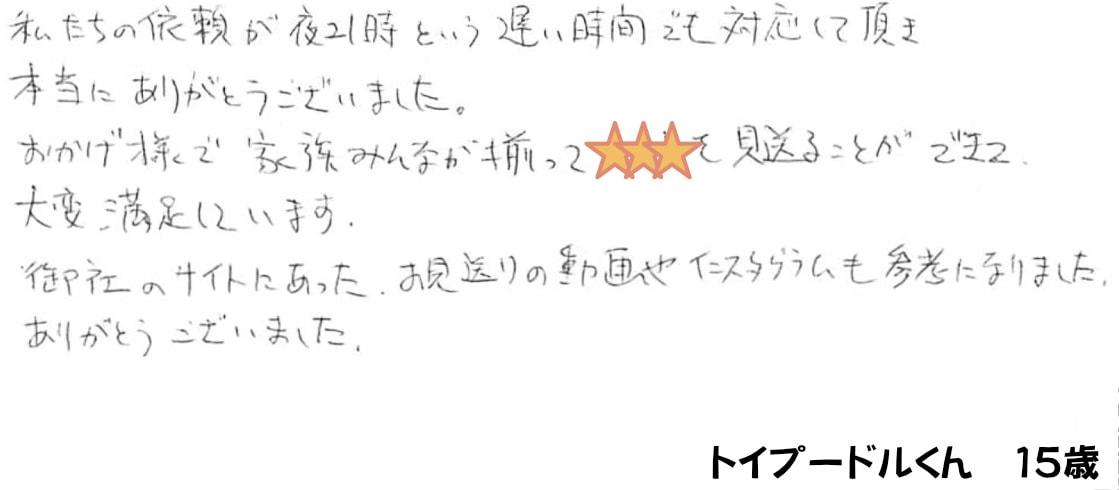 私たちの依頼が夜21時という遅い時間でも対応して頂き
本当にありがとうございました。
おかげ様で家族みんなが揃って を見送ることができて、
大変満足しています。
御社のサイトにあった、お見送りの動画やインスタグラムも参考になりました。
ありがとうございました。
トイプードルくん 15歳